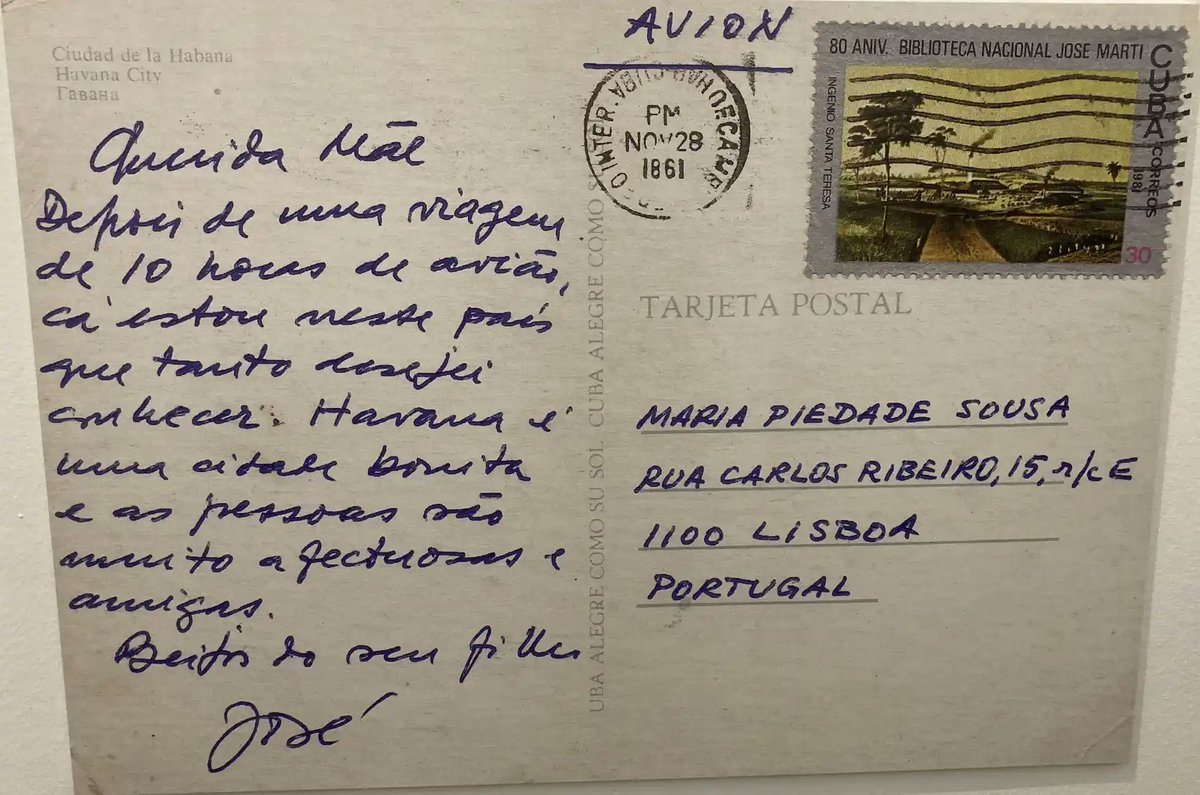 Ciudad de la Habana
Havana City
Гавана
Querida Mãe
Depois de uma viagem
de 10 horas de avião,
cá estou neste país
que tanto desejei
conhecer. Havana é
uma cidade bonita
e as pessoas são
muito afectuosas e
amigas.
Beijos do seu filho
José
UBA ALEGRE COMO SU SOL CUBA ALEGRE COMO S
AVION
PM
NOV 28
1861
80 ANIV. BIBLIOTECA NACIONAL JOSE MARTI
INGENIO SANTA TERESA
CUBA CORREOS
1981
30
TARJETA POSTAL
MARIA PIEDADE SOUSA
RUA CARLOS RIBEIRO, 15, r/c E
1100 LISBOA
PORTUGAL